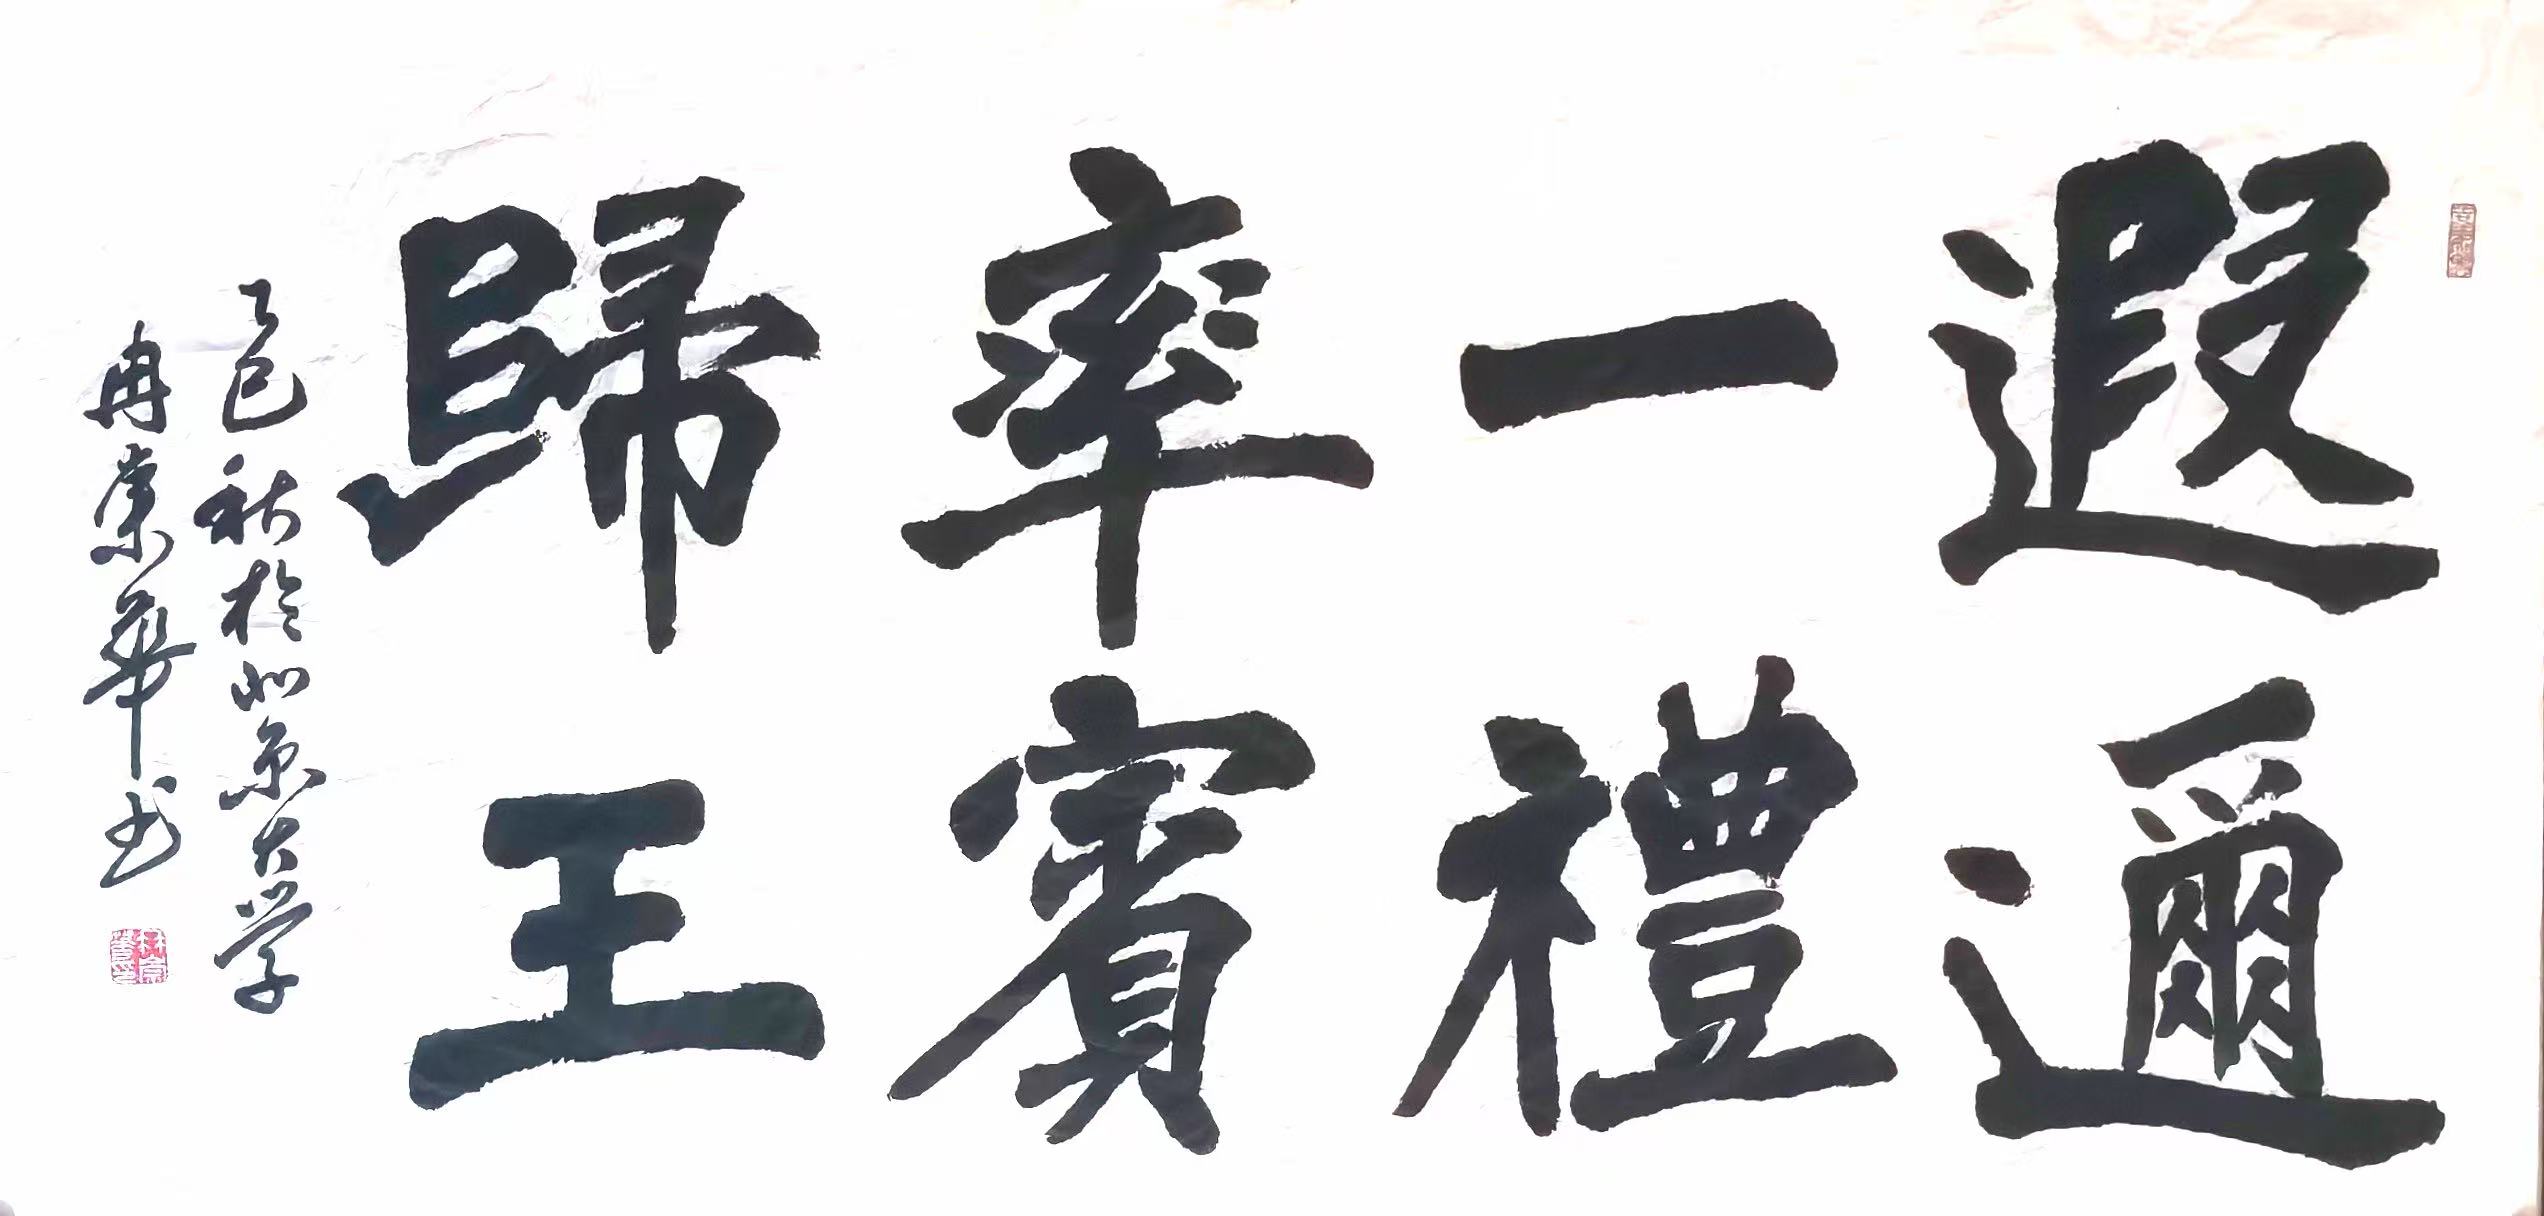 遐邇
一禮
率賓
歸王
乙巳秋於北京大学
冉 華书